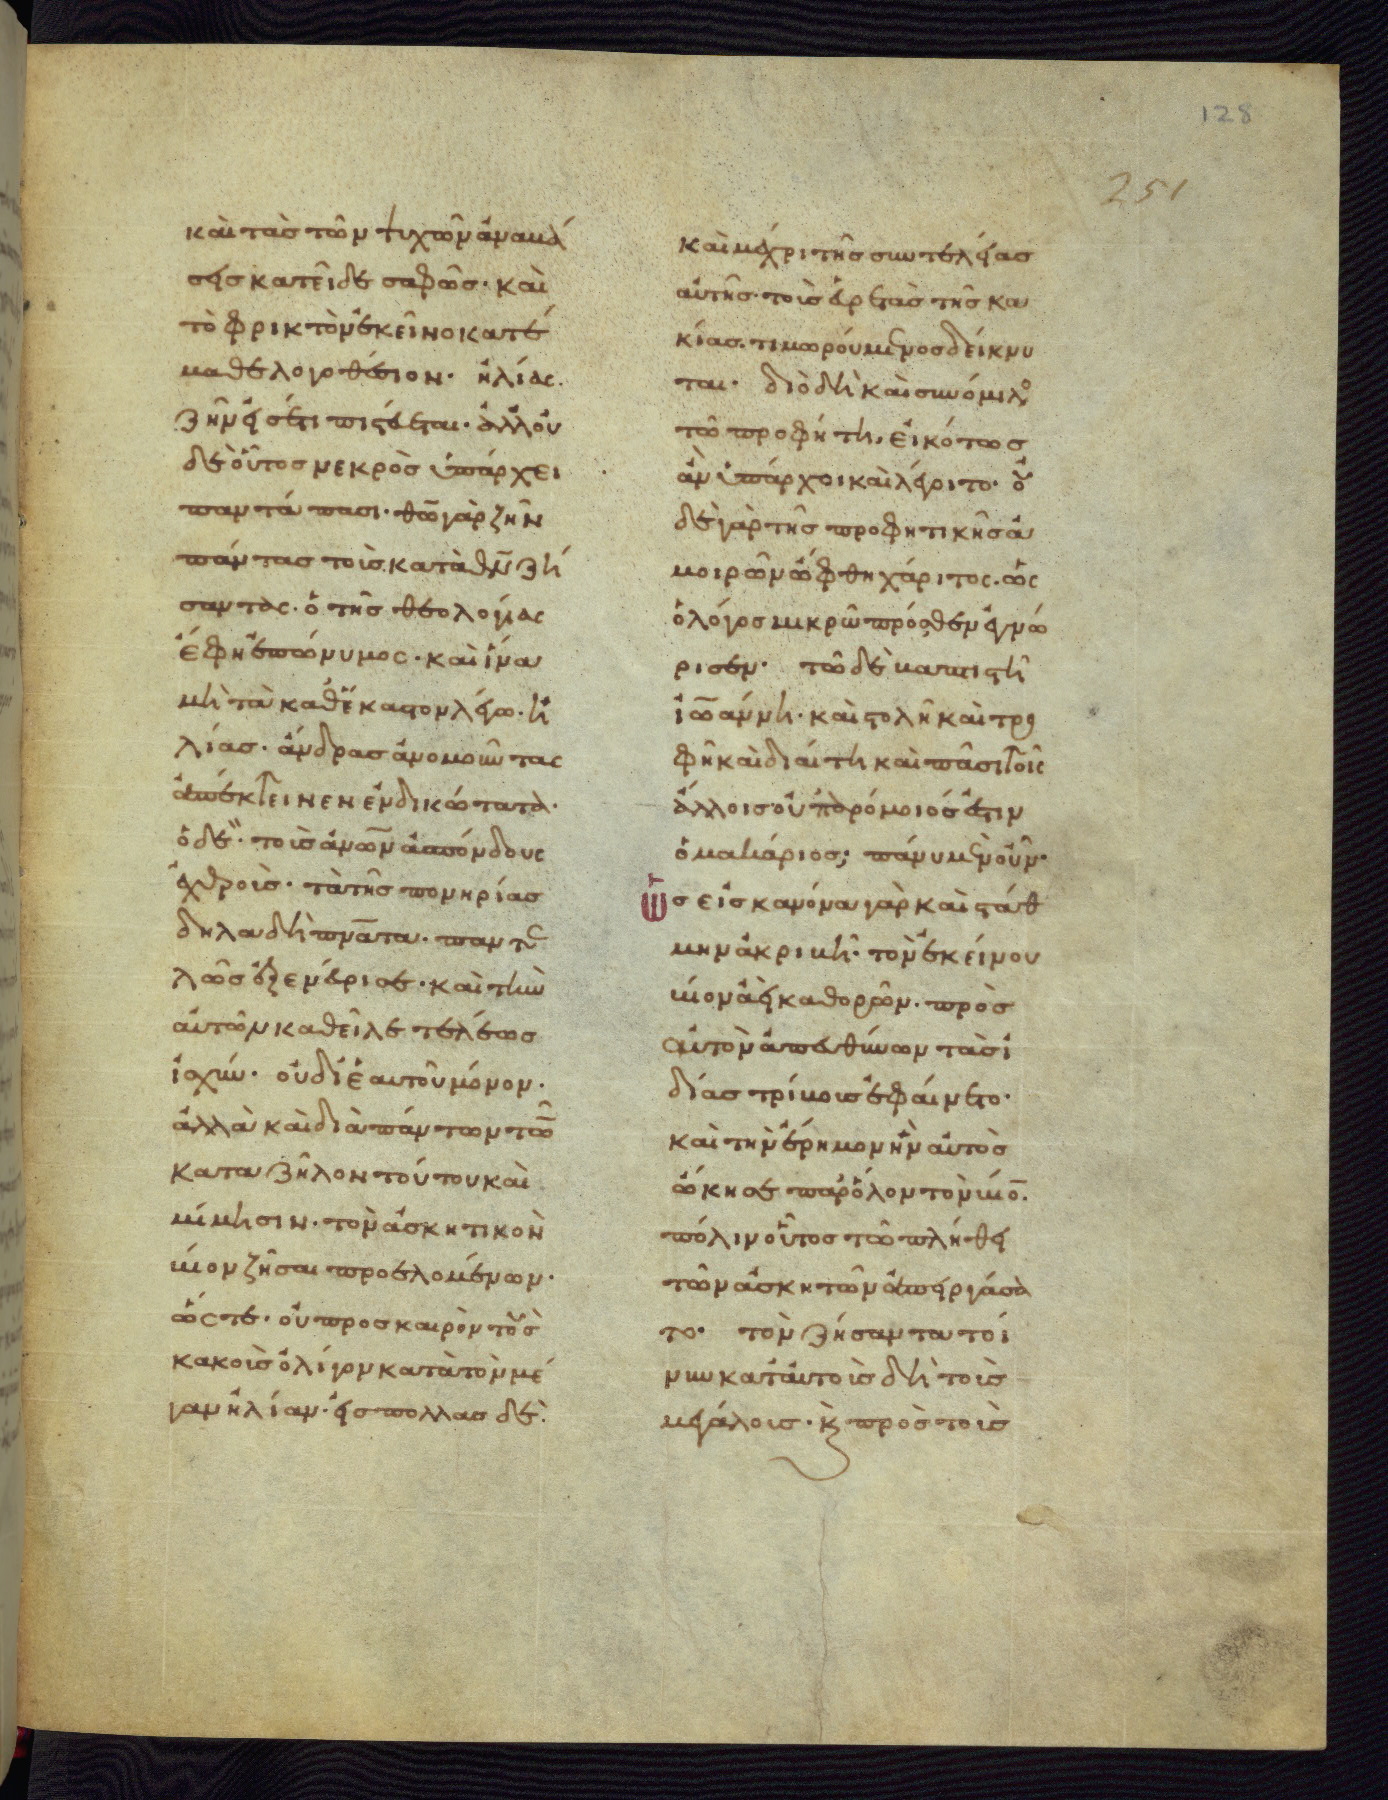 128
251
καὶ τὰς τῶν τυχῶν ἀναμά
σεις κατεῖδε σαφῶς· καὶ
τὸ φρικτὸν ἐκεῖνο κατέ
μαθε λογοθέσιον. ἠλίας
ζῆν εἰσέτι πιστεύεται. ἀλλ' οὐ
δὲ οὗτος νεκρὸς ὑπάρχει
παντάπασι. θῶ γὰρ ζῆν
πάντας τοὺς κατὰ θν ζή
σαντας. ὁ τῆς θεολογίας
ἔφη ἐπώνυμος. καὶ ἵνα
μὴ τὰ καθέκαστον λέγω. ἠ
λίας. ἄνδρας ἀνομοῦντας
ἀπέκτεινεν ἐνδικώτατα.
ὁ δὲ. τοὺς ἀνων ἀσπόνδους
ἐχθροὺς. τὰ τῆς πονηρίας
δηλαδὴ πνατα. παντε
λῶς ἐξενεύρισε. καὶ τὴν
αὐτῶν καθεῖλε τελέως
ἰσχύν. οὐ δι' ἑαυτοῦ μόνον.
ἀλλὰ καὶ διὰ πάντων τῶν
κατα ζῆλον τούτου καὶ
μίμησιν. τὸν ἀσκητικὸν
βίον ζῆσαι προελομένων.
ὥστε. οὐ πρὸς καιρὸν τοὺς
κακοὺς ὀλίγον κατὰ τὸν μέ
γαν ἠλίαν. εἰς πολλας δὲ
καὶ μέχρι τῆς συντελείας
αὐτῆς. τοὺς ἐργάτας τῆς κα
κίας. τιμωρούμενος δείκνυ
ται. διὸ δὴ καὶ συνόμιλο
τῶ προφήτη, εἰκότως
ἂν ὑπάρχοι καὶ λέγοιτο. οὐ
δὲ γὰρ τῆς προφητικῆς ἀ
μοιρῶν ὤφθη χάριτος. ὡς
ὁ λόγος μικρῶ πρόσθεν ἐγνώ
ρισεν. τῶ δὲ βαπτιστῆ
ἰωάννη. καὶ στολῆ καὶ τρο
φῆ καὶ διαίτη καὶ πᾶσι τοῖς
ἄλλοις οὐ παρόμοιός ἐστιν
ὁ μακάριος; πάνυ μὲν οὖν.
ὡς εἰς κανόνα γὰρ καὶ στάθ
μην ἀκριβῆ. τὸν ἐκείνου
βίον ἀεὶ καθορῶν. πρὸς
αὐτὸν ἀπευθύνων τὰς ἰ
δίας τρίβους ἐφαίνετο.
καὶ τὴν ἔρημον ἣν αὐτὸς
ὤκησε παρ' ὅλον τὸν βίο.
πόλιν οὗτος τῶ πλήθει
τῶν ἀσκητῶν ἀπειργάσα
το. τὸν ζήσαντα τοί
νυν κατ' αὐτοὺς δὴ τοὺς
μεγάλους. κ πρὸς τοὺς